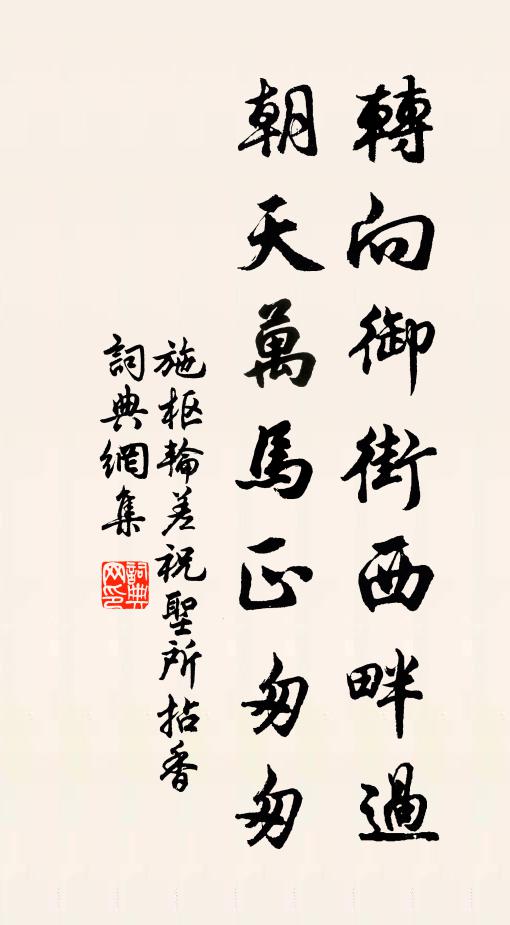 轉向御街西畔過
朝天萬馬正匆匆
施枢輪差祝聖所拈香
詞典網集
詞典网印